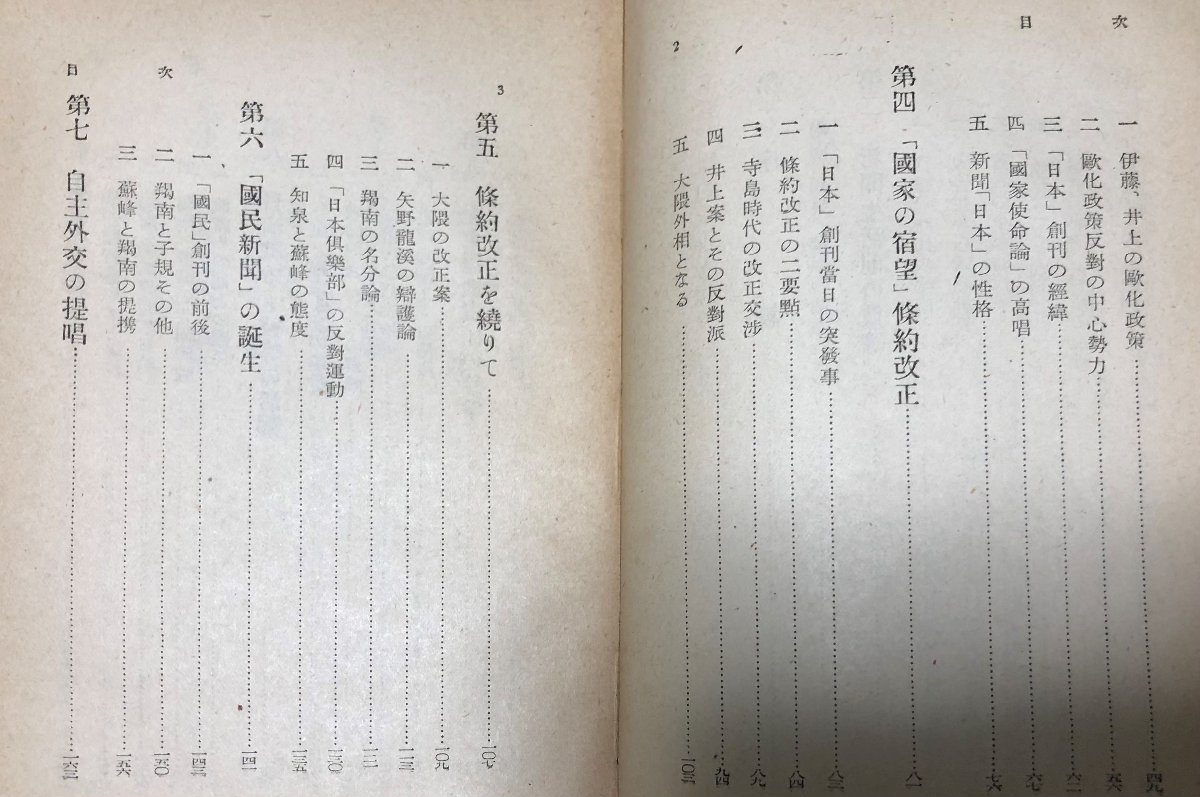 目次
2
一 伊藤、井上の歐化政策……四九
二 歐化政策反對の中心勢力……五六
三 「日本」創刊の經緯……六二
四 「國家使命論」の高唱……六七
五 新聞「日本」の性格……七六
第四 「國家の宿望」條約改正……八一
一 「日本」創刊當日の突發事……八三
二 條約改正の二要點……八四
三 寺島時代の改正交渉……八九
四 井上案とその反對派……九四
五 大隈外相となる……一〇三
3
第五 條約改正を繞りて……一〇七
一 大隈の改正案……一〇九
二 矢野龍溪の辯護論……一一三
三 羯南の名分論……一二一
四 「日本倶樂部」の反對運動……一三〇
五 知泉と蘇峰の態度……一三五
第六 「國民新聞」の誕生……一四一
一 「國民」創刊の前後……一四三
二 羯南と子規その他……一五〇
三 蘇峰と羯南の提携……一五六
第七 自主外交の提唱……一六三
目次